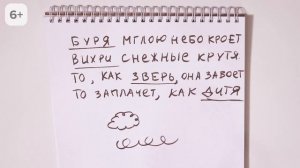 6+
БУРЯ МГЛОЮ НЕБО КРОЕТ
ВИХРИ СНЕЖНЫЕ КРУТЯ
ТО, КАК ЗВЕРЬ, ОНА ЗАВОЕТ
ТО ЗАПЛАЧЕТ, КАК ДИТЯ